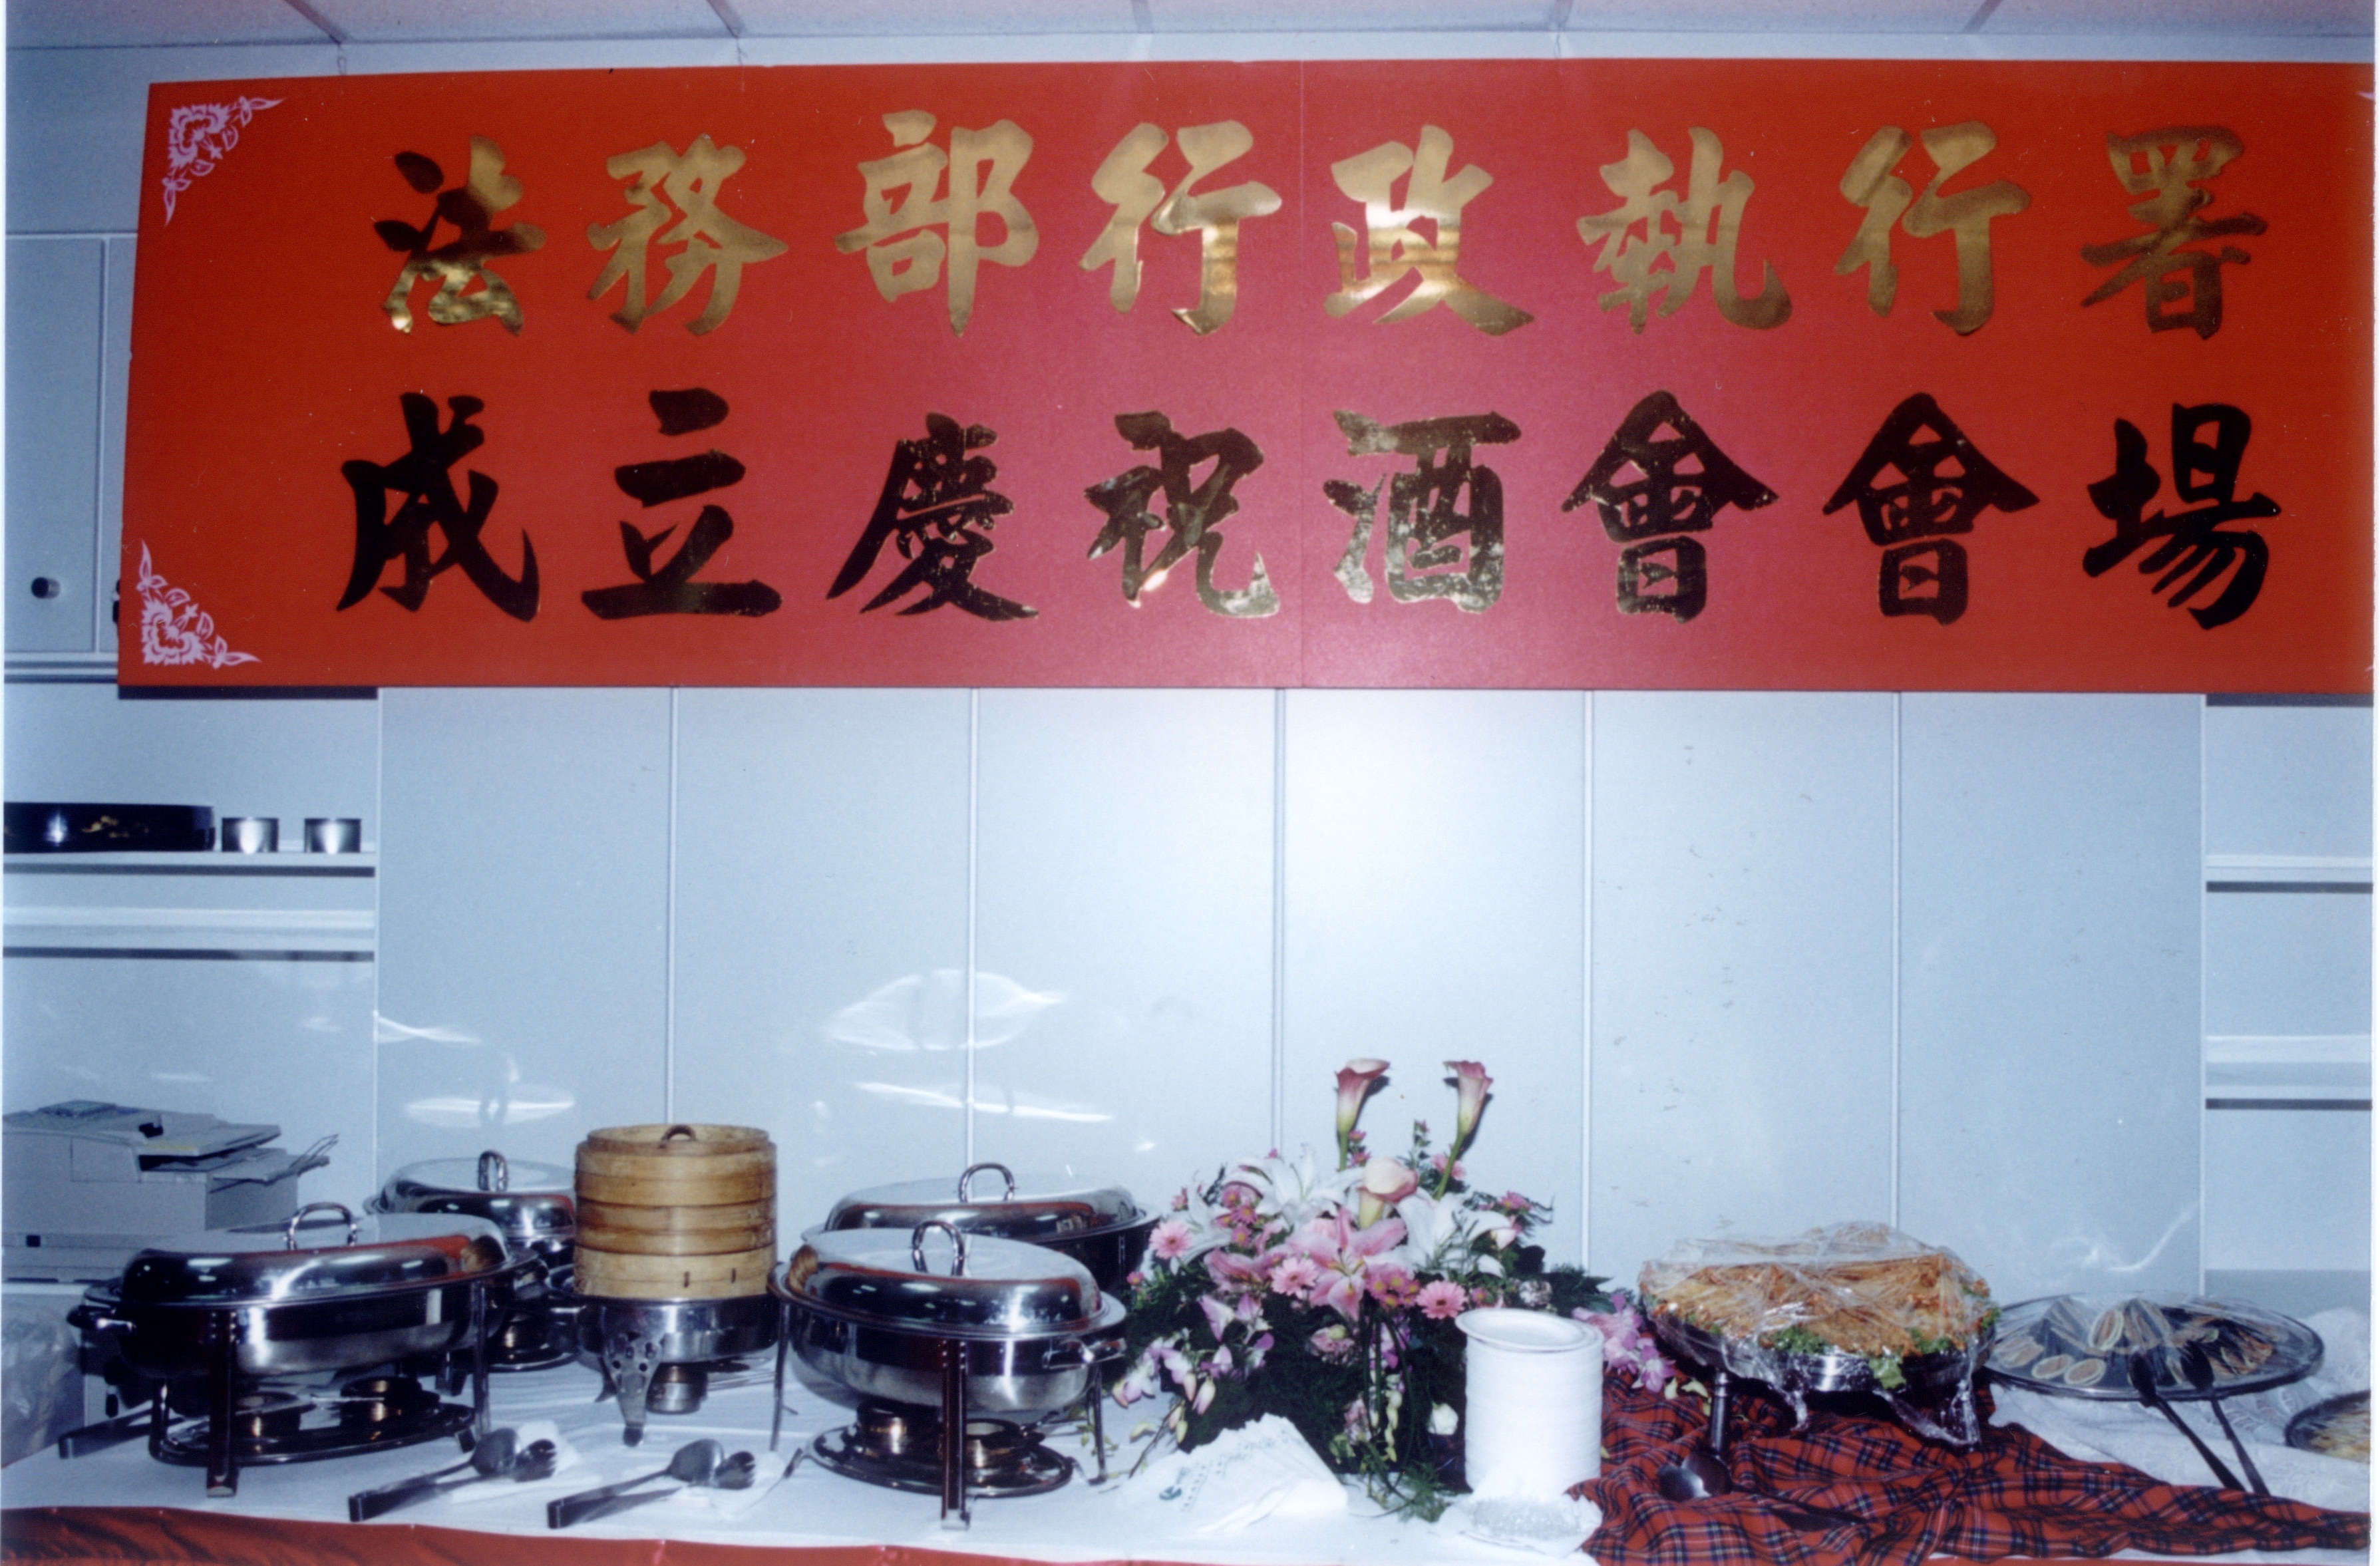 法務部行政執行署
成立慶祝酒會會場